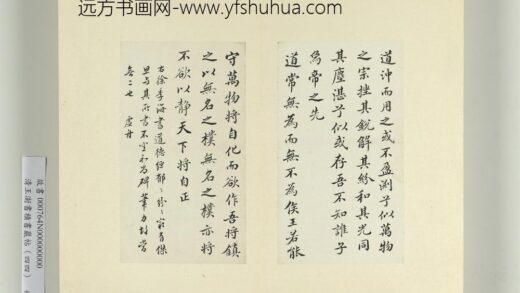 远方书画网-www.yfshuhua.com
道沖而用之或不盈淵乎似萬物
之宗挫其銳解其紛和其光同
其塵湛乎似或存吾不知誰子
為帝之先
道常無為而無不為侯王若能
守萬物將自化而欲作吾將鎮
之以無名之樸無名之樸亦將
不欲以靜天下將自正
右徐季海書道德經
其所書不空和尚碑筆力
故書000764N000000000
清王澍書積書巖帖(四四)